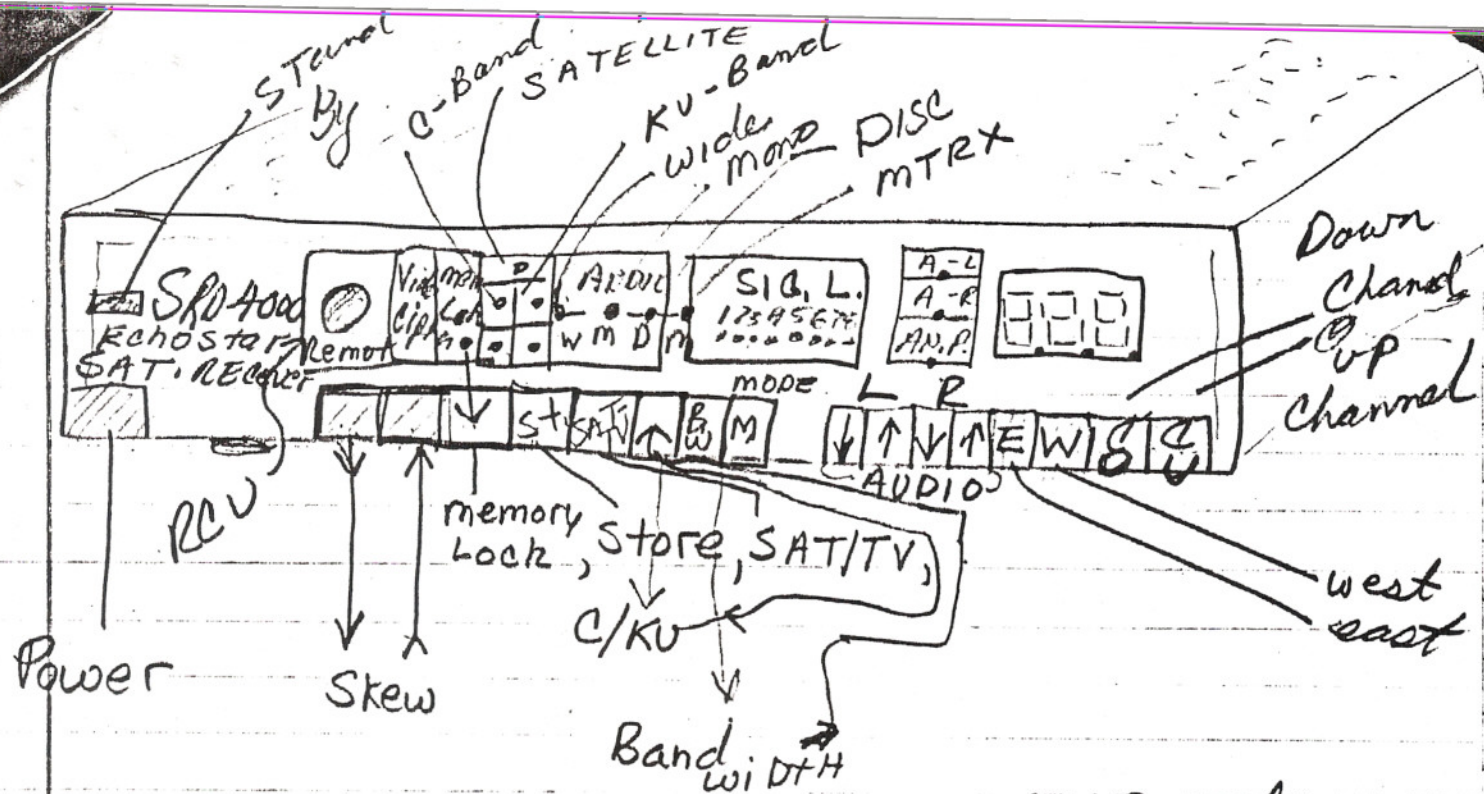 Stand
By
C-Band
SATELLITE
KU-Band
wide
mono
DISC
MTRX
Down
Channel
up
Channel
SRD4000
EchoStar
SAT.
Remot
Vid
Ciph
mem
Lok
P
AUDIO
W M D M
SIG. L.
A-L
A-R
AN.P.
888
MODE
L R
St
SATV
BW
M
E
W
AUDIO
RCU
memory
Lock, Store, SAT/TV,
C/KU
west
east
Power
Skew
Band
WiDtH